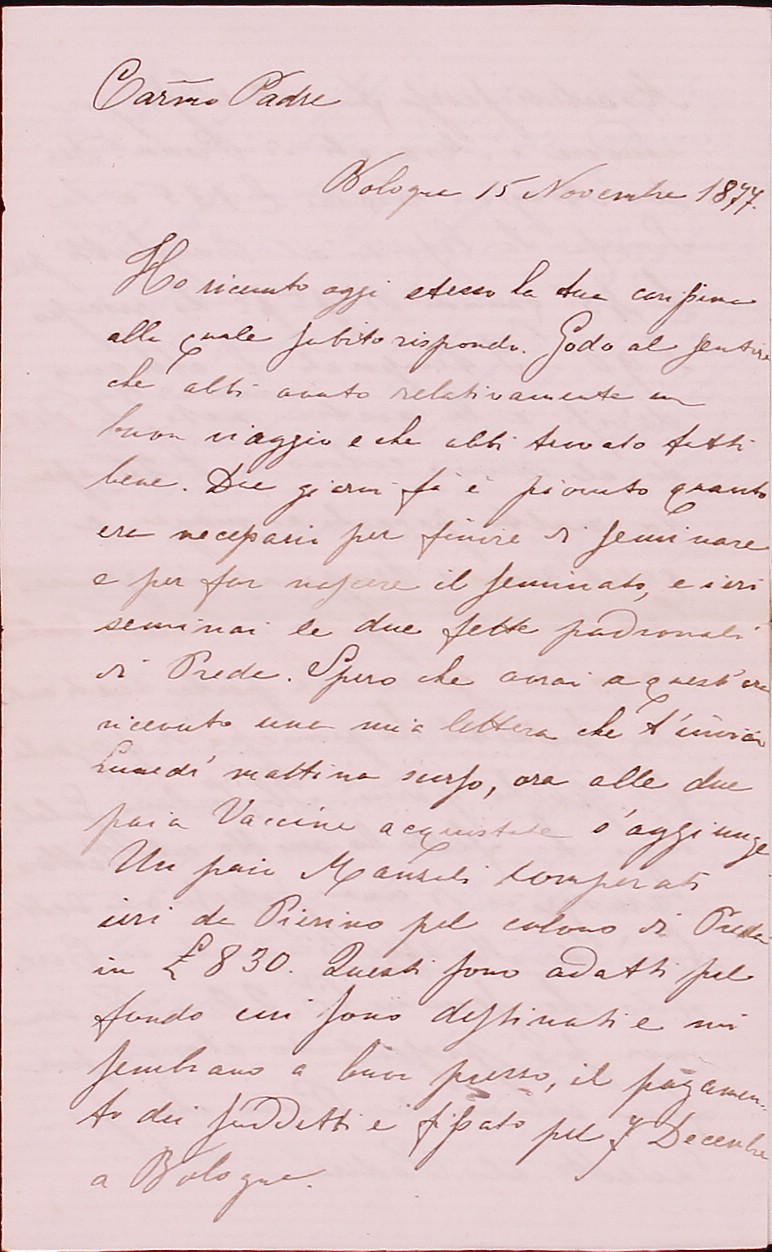 Carmo Padre
Bologna 15 Novembre 1877.
Ho ricevuto oggi stesso la tua carissima
alla quale subito rispondo. Godo al sentire
che abbi avuto relativamente un
buon viaggio e che abbi trovato tutti
bene. Due giorni fà è piovuto quanto
era necessario per finire di seminare
e per far nascere il seminato, e ieri
seminai le due fette padronali
di Preda. Spero che avrai a quest'ora
ricevuto una mia lettera che t'inviai
Lunedì mattina scorso, ora alle due
paia Vaccine acquistate s'aggiunge
Un paio Manzoli comperati
ieri da Pierino pel colono di Preda
in £ 830. Questi sono adatti pel
fondo cui sono destinati e mi
sembrano a buon prezzo, il pagamen-
to dei suddetti è fissato pel 7 Decembre
a Bologna.